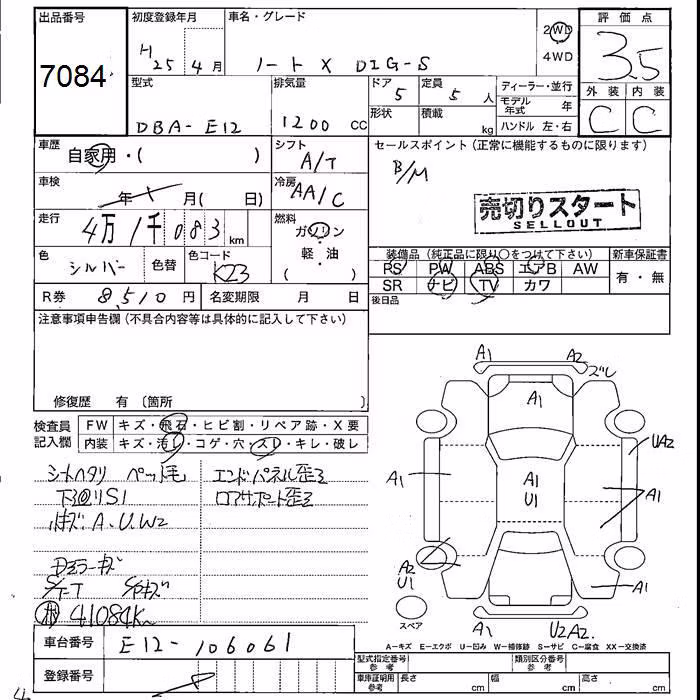 出品番号
7084
初度登録年月
H 25年 4月
車名・グレード
ノート X DIG-S
2WD
4WD
評価点
3.5
外装 内装
C C
型式
DBA-E12
排気量
1200 CC
ドア
5
形状
定員
5 人
積載
kg
ディーラー・並行
モデル年式 年
ハンドル 左・右
車歴
自家用・( )
シフト
A/T
セールスポイント(正常に機能するものに限ります)
B/M
売切りスタート
SELLOUT
車検
年 月( 日)
冷房
AA/C
走行
4万1千083 km
燃料
ガソリン
・
軽・油
色
シルバー
色替
色コード
K23
装備品(純正品に限り○をつけて下さい)
新車保証書
PS PW ABS エアB AW
SR ナビ TV カワ
有・無
R券 8,510円
名変期限 月 日
後日品
注意事項申告欄(不具合内容等は具体的に記入して下さい)
修復歴 有〔箇所 〕
検査員記入欄
FW キズ・飛石・ヒビ割・リペア跡・X要
内装 キズ・汚レ・コゲ・穴・スレ・キレ・破レ
シートヘタリ ペット毛
エンドパネル歪ミ
下廻りS1
ロアサポート歪ミ
A、U、W2
S/T-T
41084K
A1 A2 ズレ
A1
UA2
A1
A1
U1
A1
A2
U1
A1
スペア
A1
U2A2.
A-キズ E-エクボ U-凹み W-補修跡 S-サビ C-腐食 XX-交換済
車台番号
E12-106061
登録番号
型式指定番号 参考
類別区分番号 参考
車庫証明用 参考
長さ cm
幅 cm
高さ cm